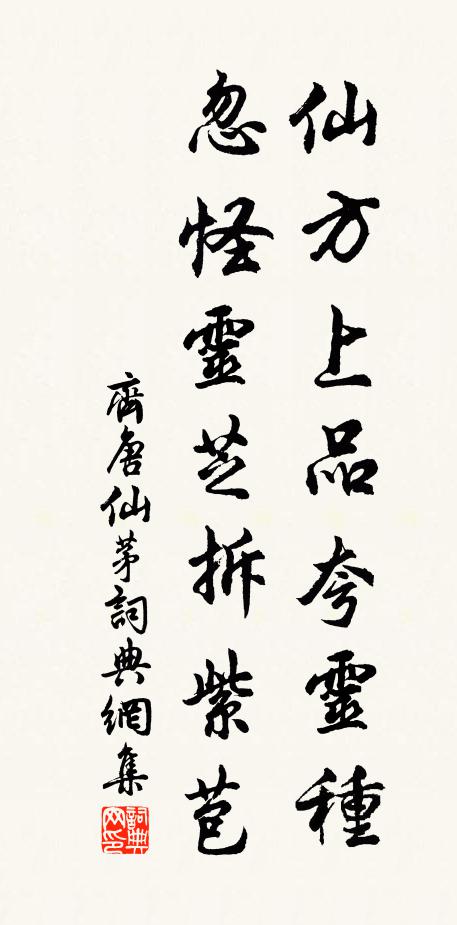 仙方上品夸靈種
忽怪靈芝拆紫苞
齊唐仙茅詞典網集
詞典网印